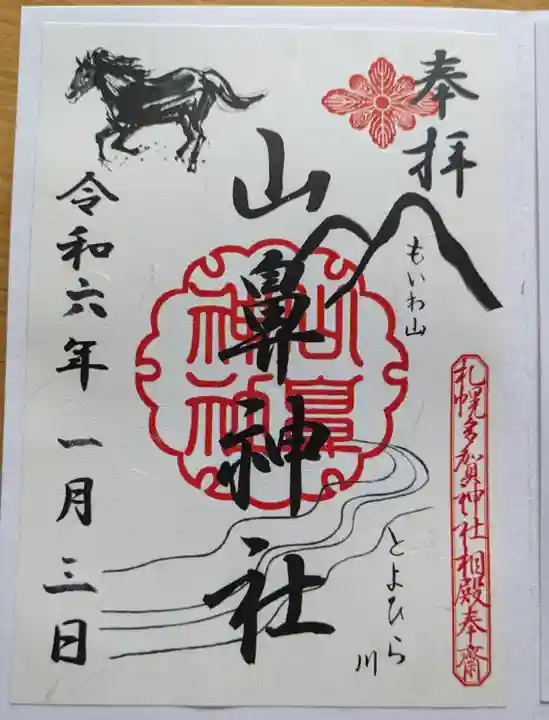 奉拝
もいわ山
札幌多賀神社相殿奉齋
山鼻神社
山鼻神社
とよひら川
令和六年 一月三日